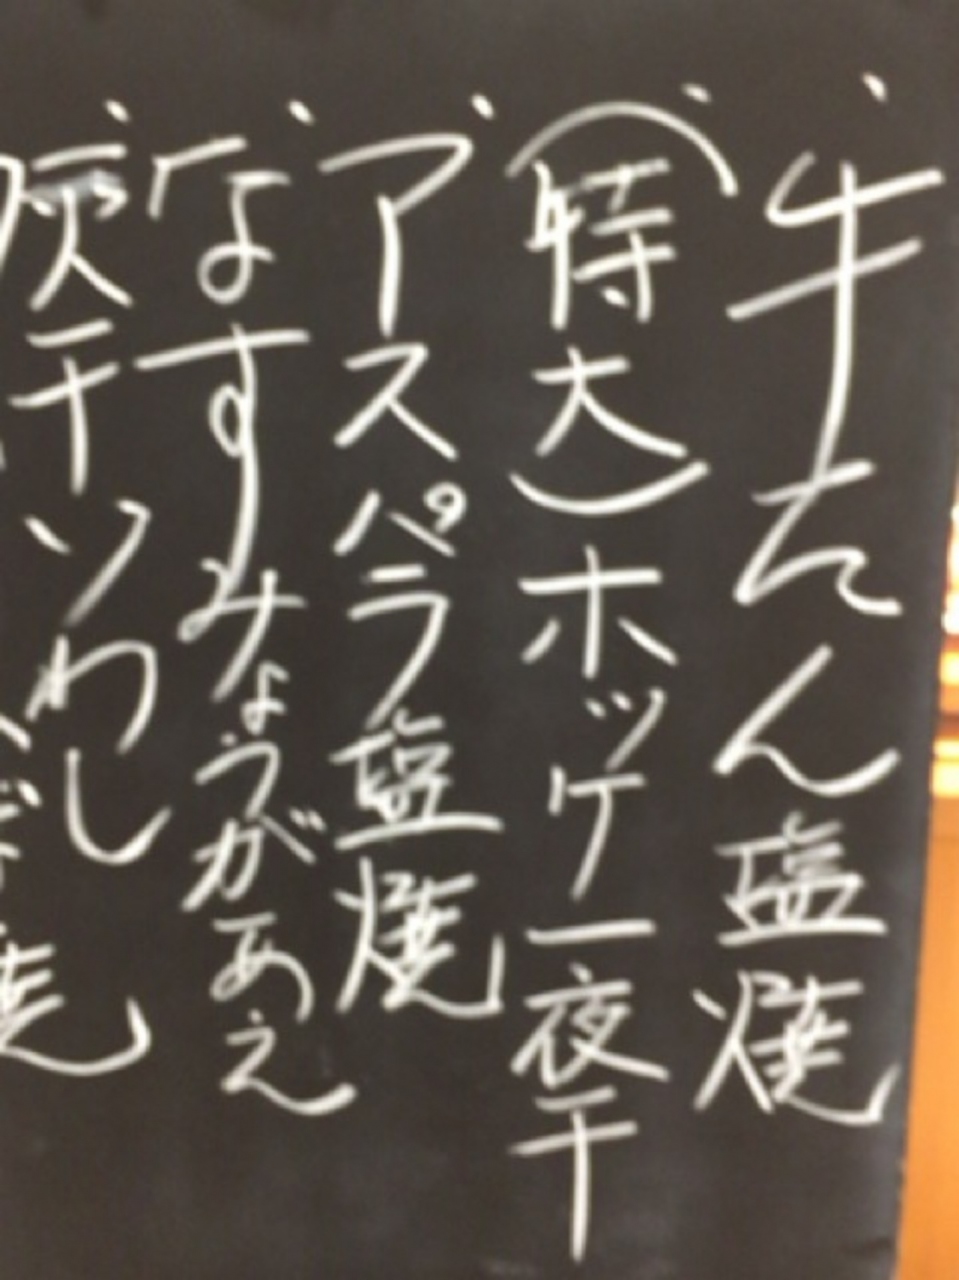 、牛たん塩焼
、（特大）ホッケ一夜干
、アスパラ塩焼
、なすみょうがあえ
、灰干いわし
焼